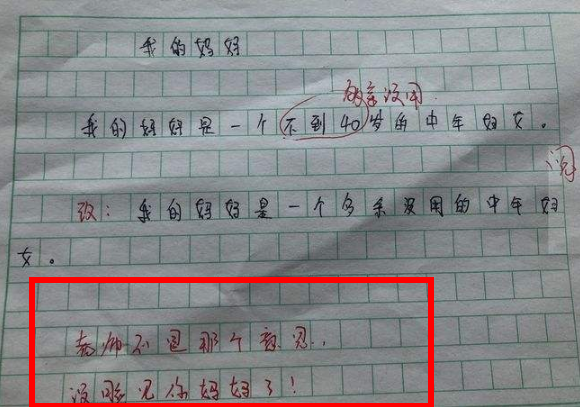 我的妈妈
多余没用
我的妈妈是一个不到40岁的中年妇女。
阅
改：我的妈妈是一个多余没用的中年妇
女。
老师不是那个意思，
没脸见你妈妈了！